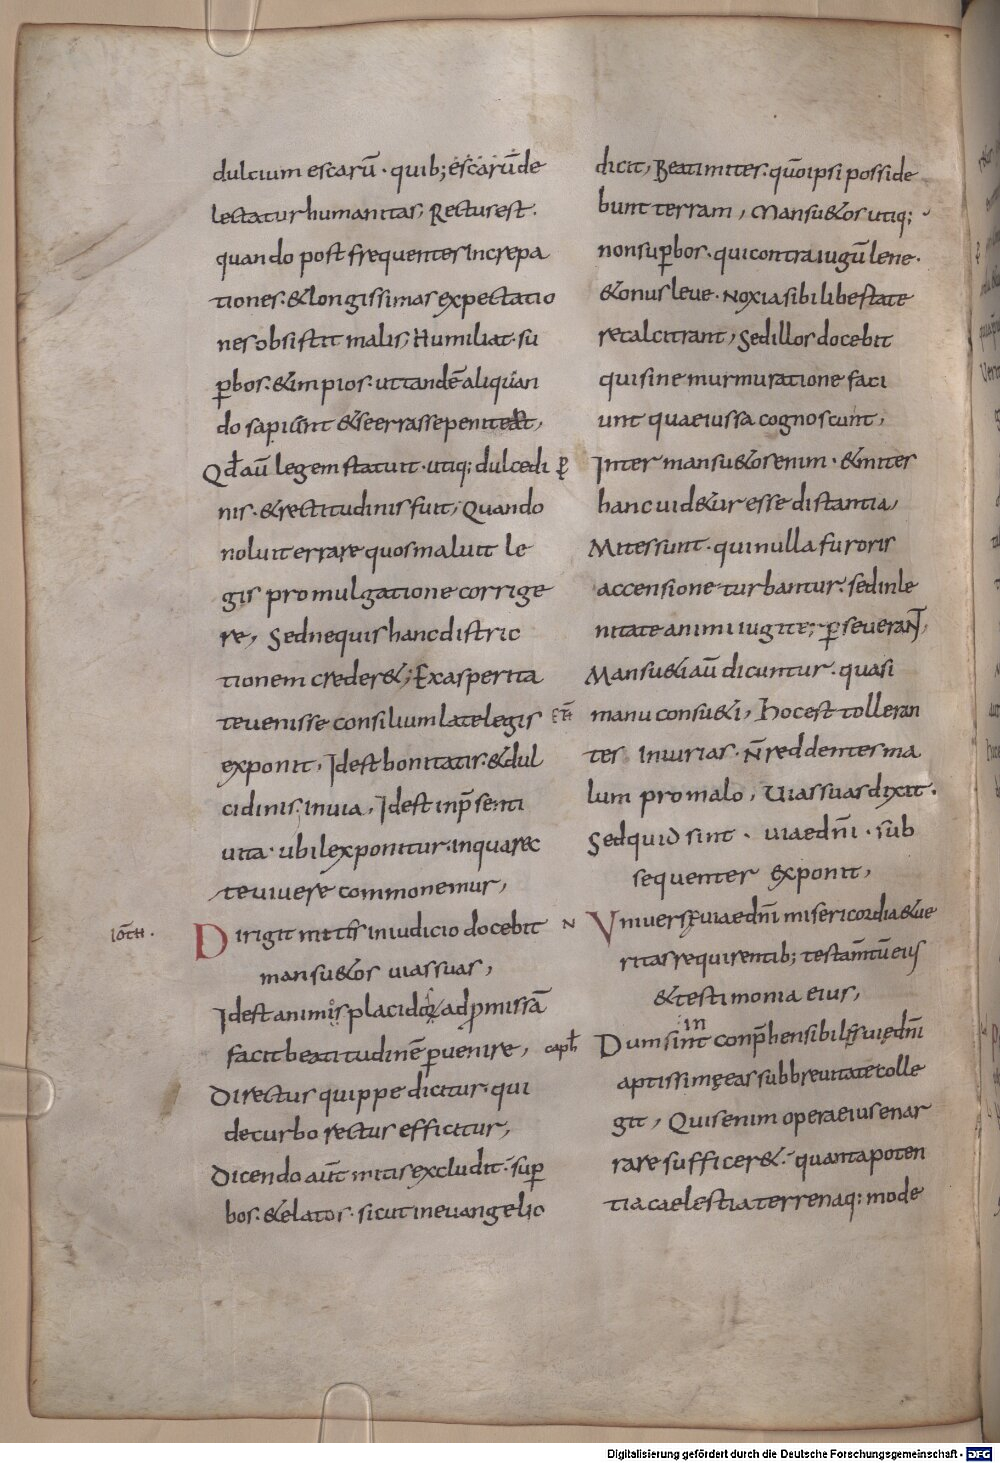 dulcium escarū · quib; escarū de
lectatur humanitas; Rectus est ·
quando post frequentes increpa
tiones · & longissimas expectatio
nes obsistit malis; Humiliat su
ꝑbos · & impios · ut tandē aliquan
do sapiant & se errasse peniteat,
Qđ aū legem statuit · utiq; dulcedi
nis · & rectitudinis fuit, Quando
noluit errare quos maluit le
gis promulgatione corrige
re, Sed nequis hanc distric
tionem creder&; Exasperita
te uenisse consilium late legis
exponit, Idest bonitatis · & dul
cidinis, in uia, Idest in p̄senti
uita · ubi lex ponitur · in qua rec
te uiuere commonemur,
iōth ·
Dirigit mites in iudicio docebit
mansu&os uias suas,
Idest animis placidos ad ꝓmissā
facit beatitudinē ꝑuenire,
Directus quippe dicitur · qui
de curbo rectus efficitur,
Dicendo aūt mitis excludit · suꝑ
bos · & elatos · sicut in euangelio
dicit, Beati mites · quō ipsi posside
bunt terram, Mansu&os utiq;
non suꝑbos · qui contra iugū lene ·
& onus leue · noxia sibi libertate
recalcitrant, Sed illos docebit
qui sine murmuratione faci
unt quae iussa cognoscunt,
Inter mansu&os enim · & mites
hanc uid&ur esse distantia,
Mites sunt · qui nulla furoris
accensione turbantur · sed in le
nitate animi iugiter ꝑseuerant,
Mansu&i aū dicuntur · quasi
manu consu&i, hoc est tolleran
tes iniurias · n̄ reddentes ma
lum pro malo, Uias suas dixit ·
Sed quid sint · uiae dn̄i · sub
sequenter exponit,
Vniuersę uiae dn̄i misericordia & ue
ritas requirentib; testam̄tū eius
& testimonia eius,
caph
in
Dum sint conp̄hensibiles uię dn̄i
aptissimę eas sub breuitate colle
git, Quis enim opera eius enar
rare sufficer& · quanta poten
tia caelestia terrenaq; mode